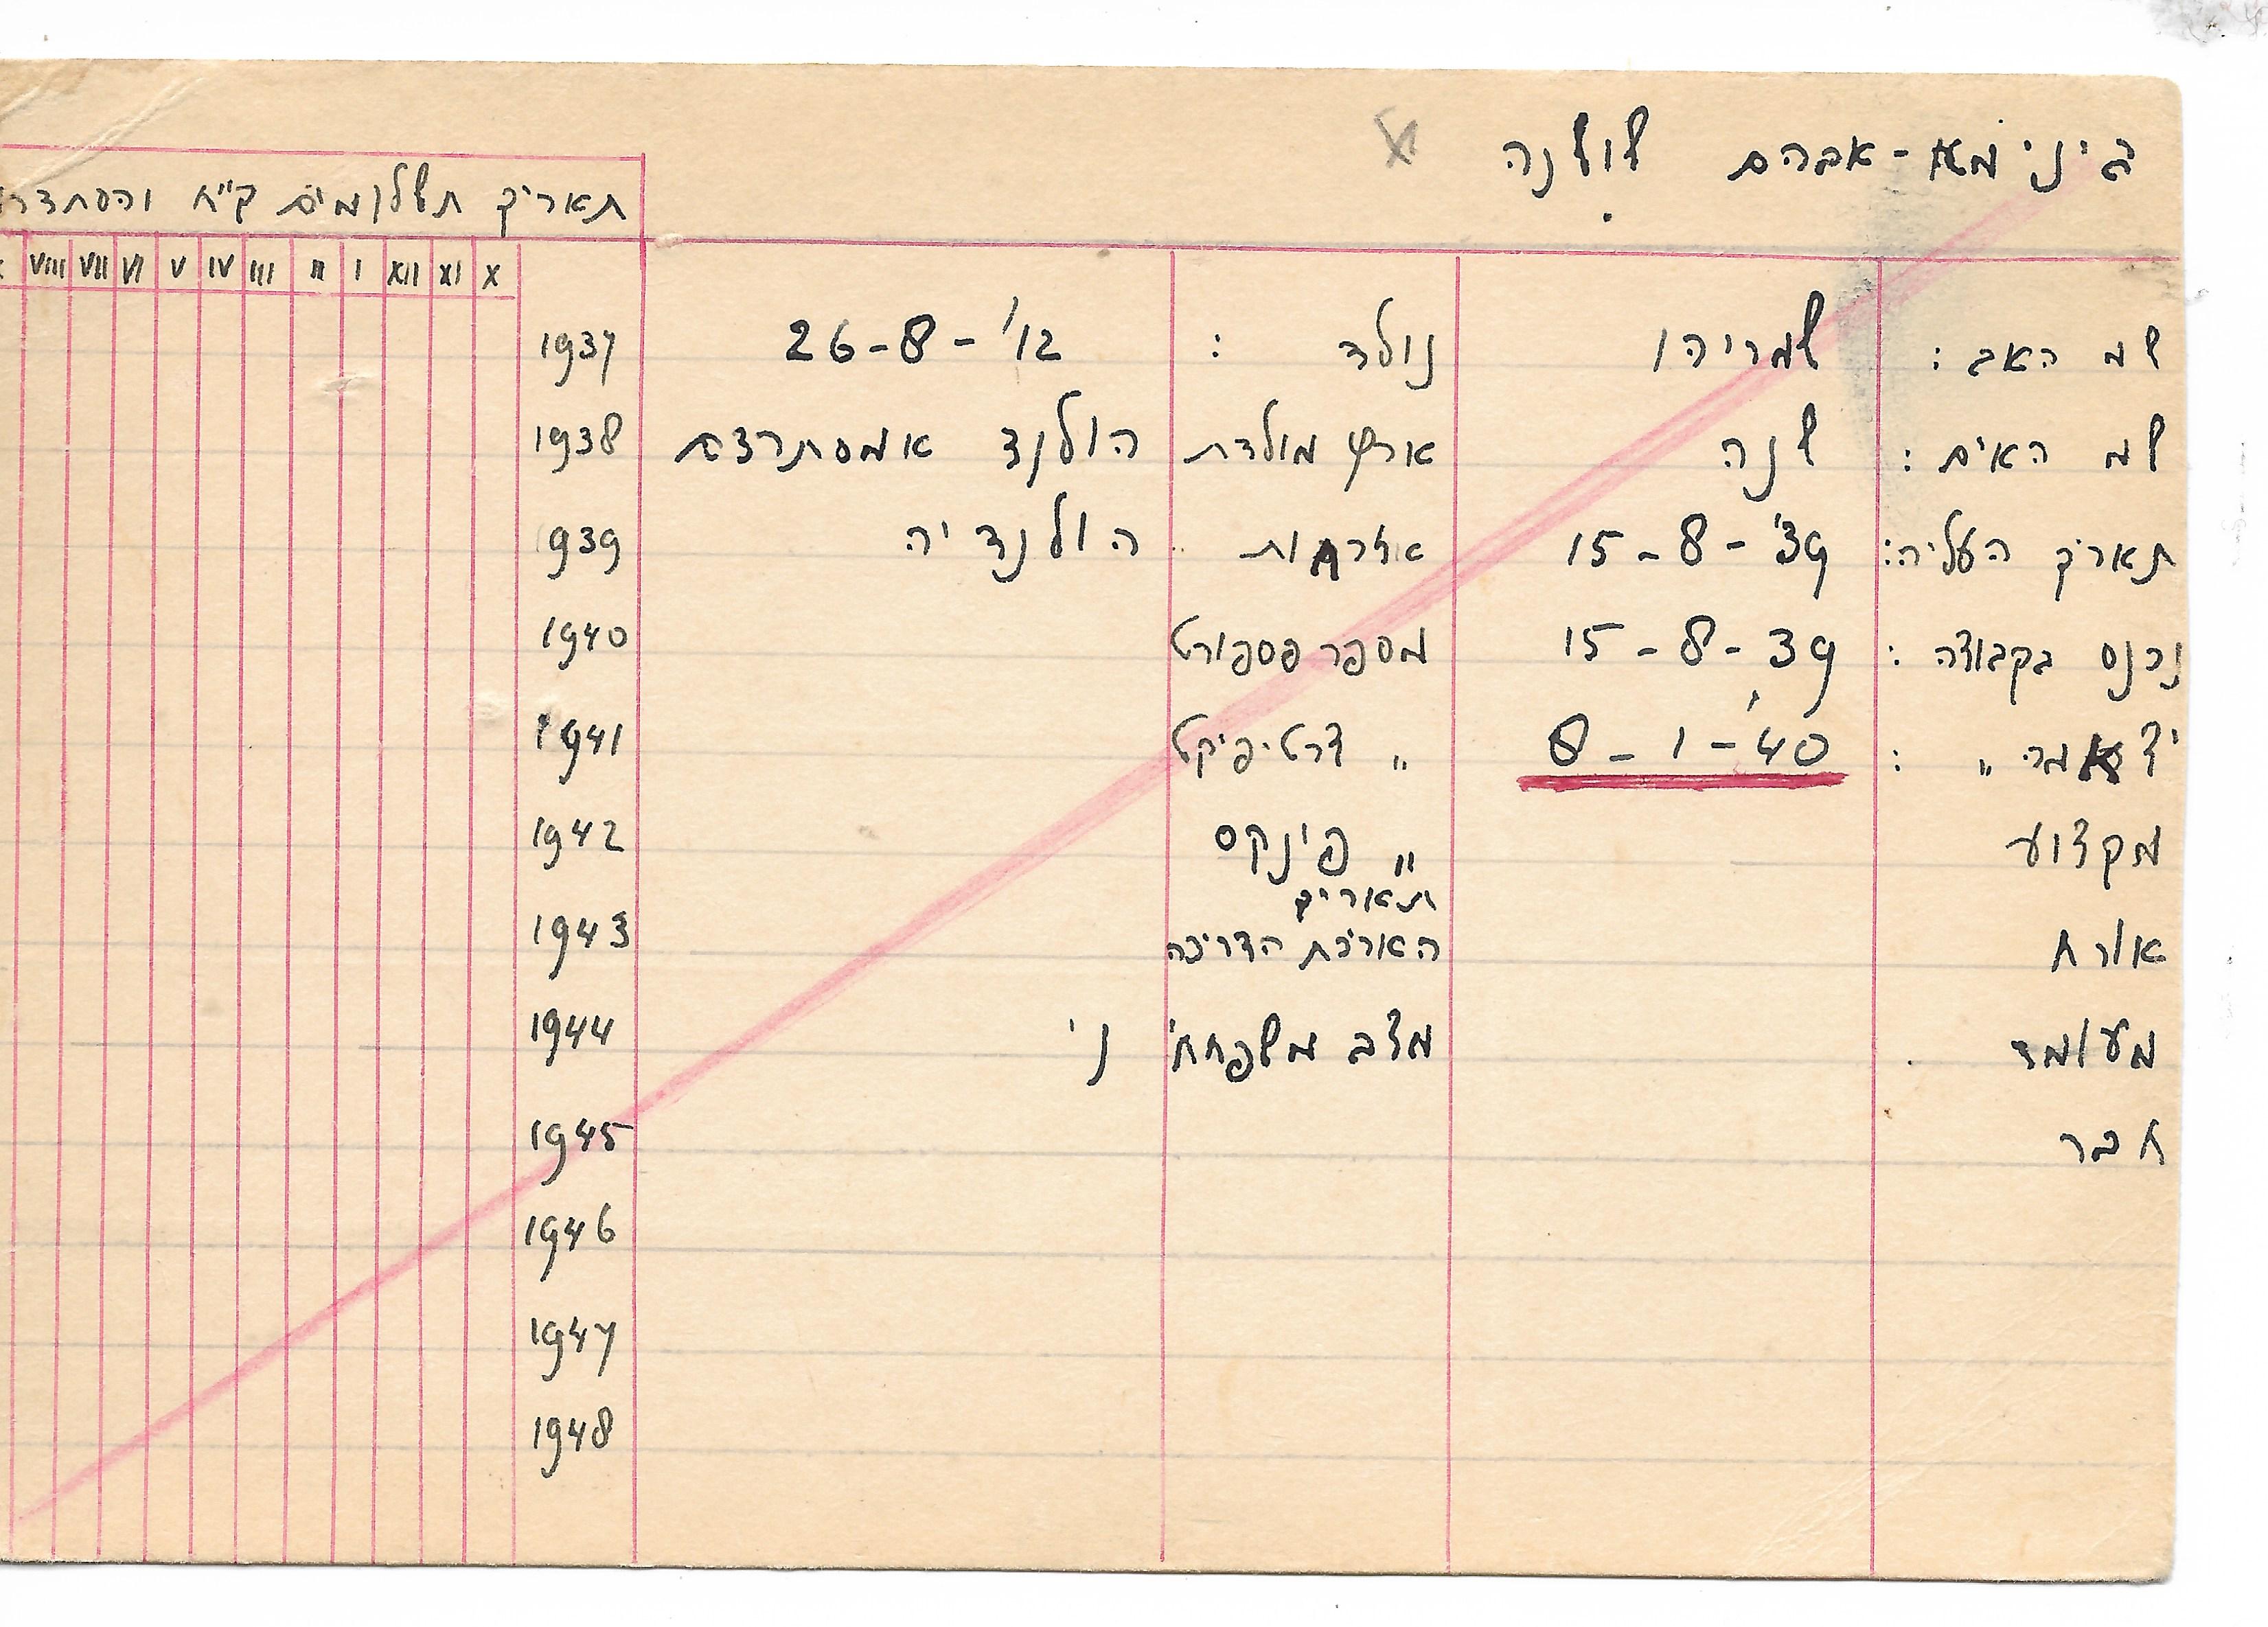 שושנה אברהם -
תאריך תשלומים קו״ח והסתדרו
X XI XII I II III IV V VI VII VIII
שם האב : שמריהו נולד : 26-8-'12 1937
שם האים : שנה ארץ מולדת הולנד אמסתרדם 1938
תאריך העליה: 15-8-'39 אזרחות הולנדיה 1939
נכנס בקבוצה : 15-8-39 מספר פספורט 1940
" : 8-1-'40 " צרטיפיקט 1941
מקצוע " פינקס 1942
תאריך
אורח הארכת הדרכה 1943
מעומד מצב משפחתי נ' 1944
חבר 1945
1946
1947
1948